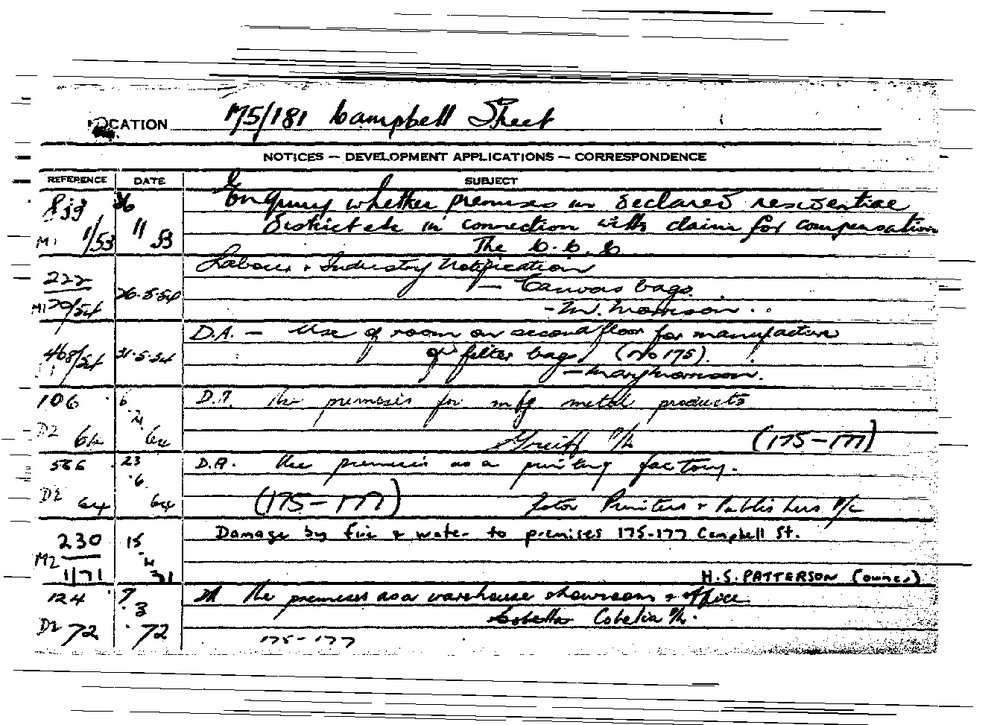 LOCATION 175/181 Campbell Street
NOTICES — DEVELOPMENT APPLICATIONS — CORRESPONDENCE
REFERENCE DATE SUBJECT
Enquiry whether premises in declared residential
M1 1/53 11 53 District etc in connection with claim for compensation
The
222 Labour & Industry Notification
M1 54 26.5.54 — Canvas bags.
- M. Morrison
D.A. — Use of room on second floor for manufacture
468/54 31.5.54 of filter bags (No 175).
— Mary Morrison.
106 6 D.A. the premises for mfg metal products
D2 64 64 P/L (175-177)
586 23 D.A. Use premises as a printing factory.
D2 64 6 64 (175-177) Printers & Publishers P/L
230 15 Damage by fire & water to premises 175-177 Campbell St.
M2 1/71 71 H.S. PATTERSON (owner)
124 7 DA the premises as a warehouse showroom & office
D2 72 3 72 Cobelia P/L.
175-177